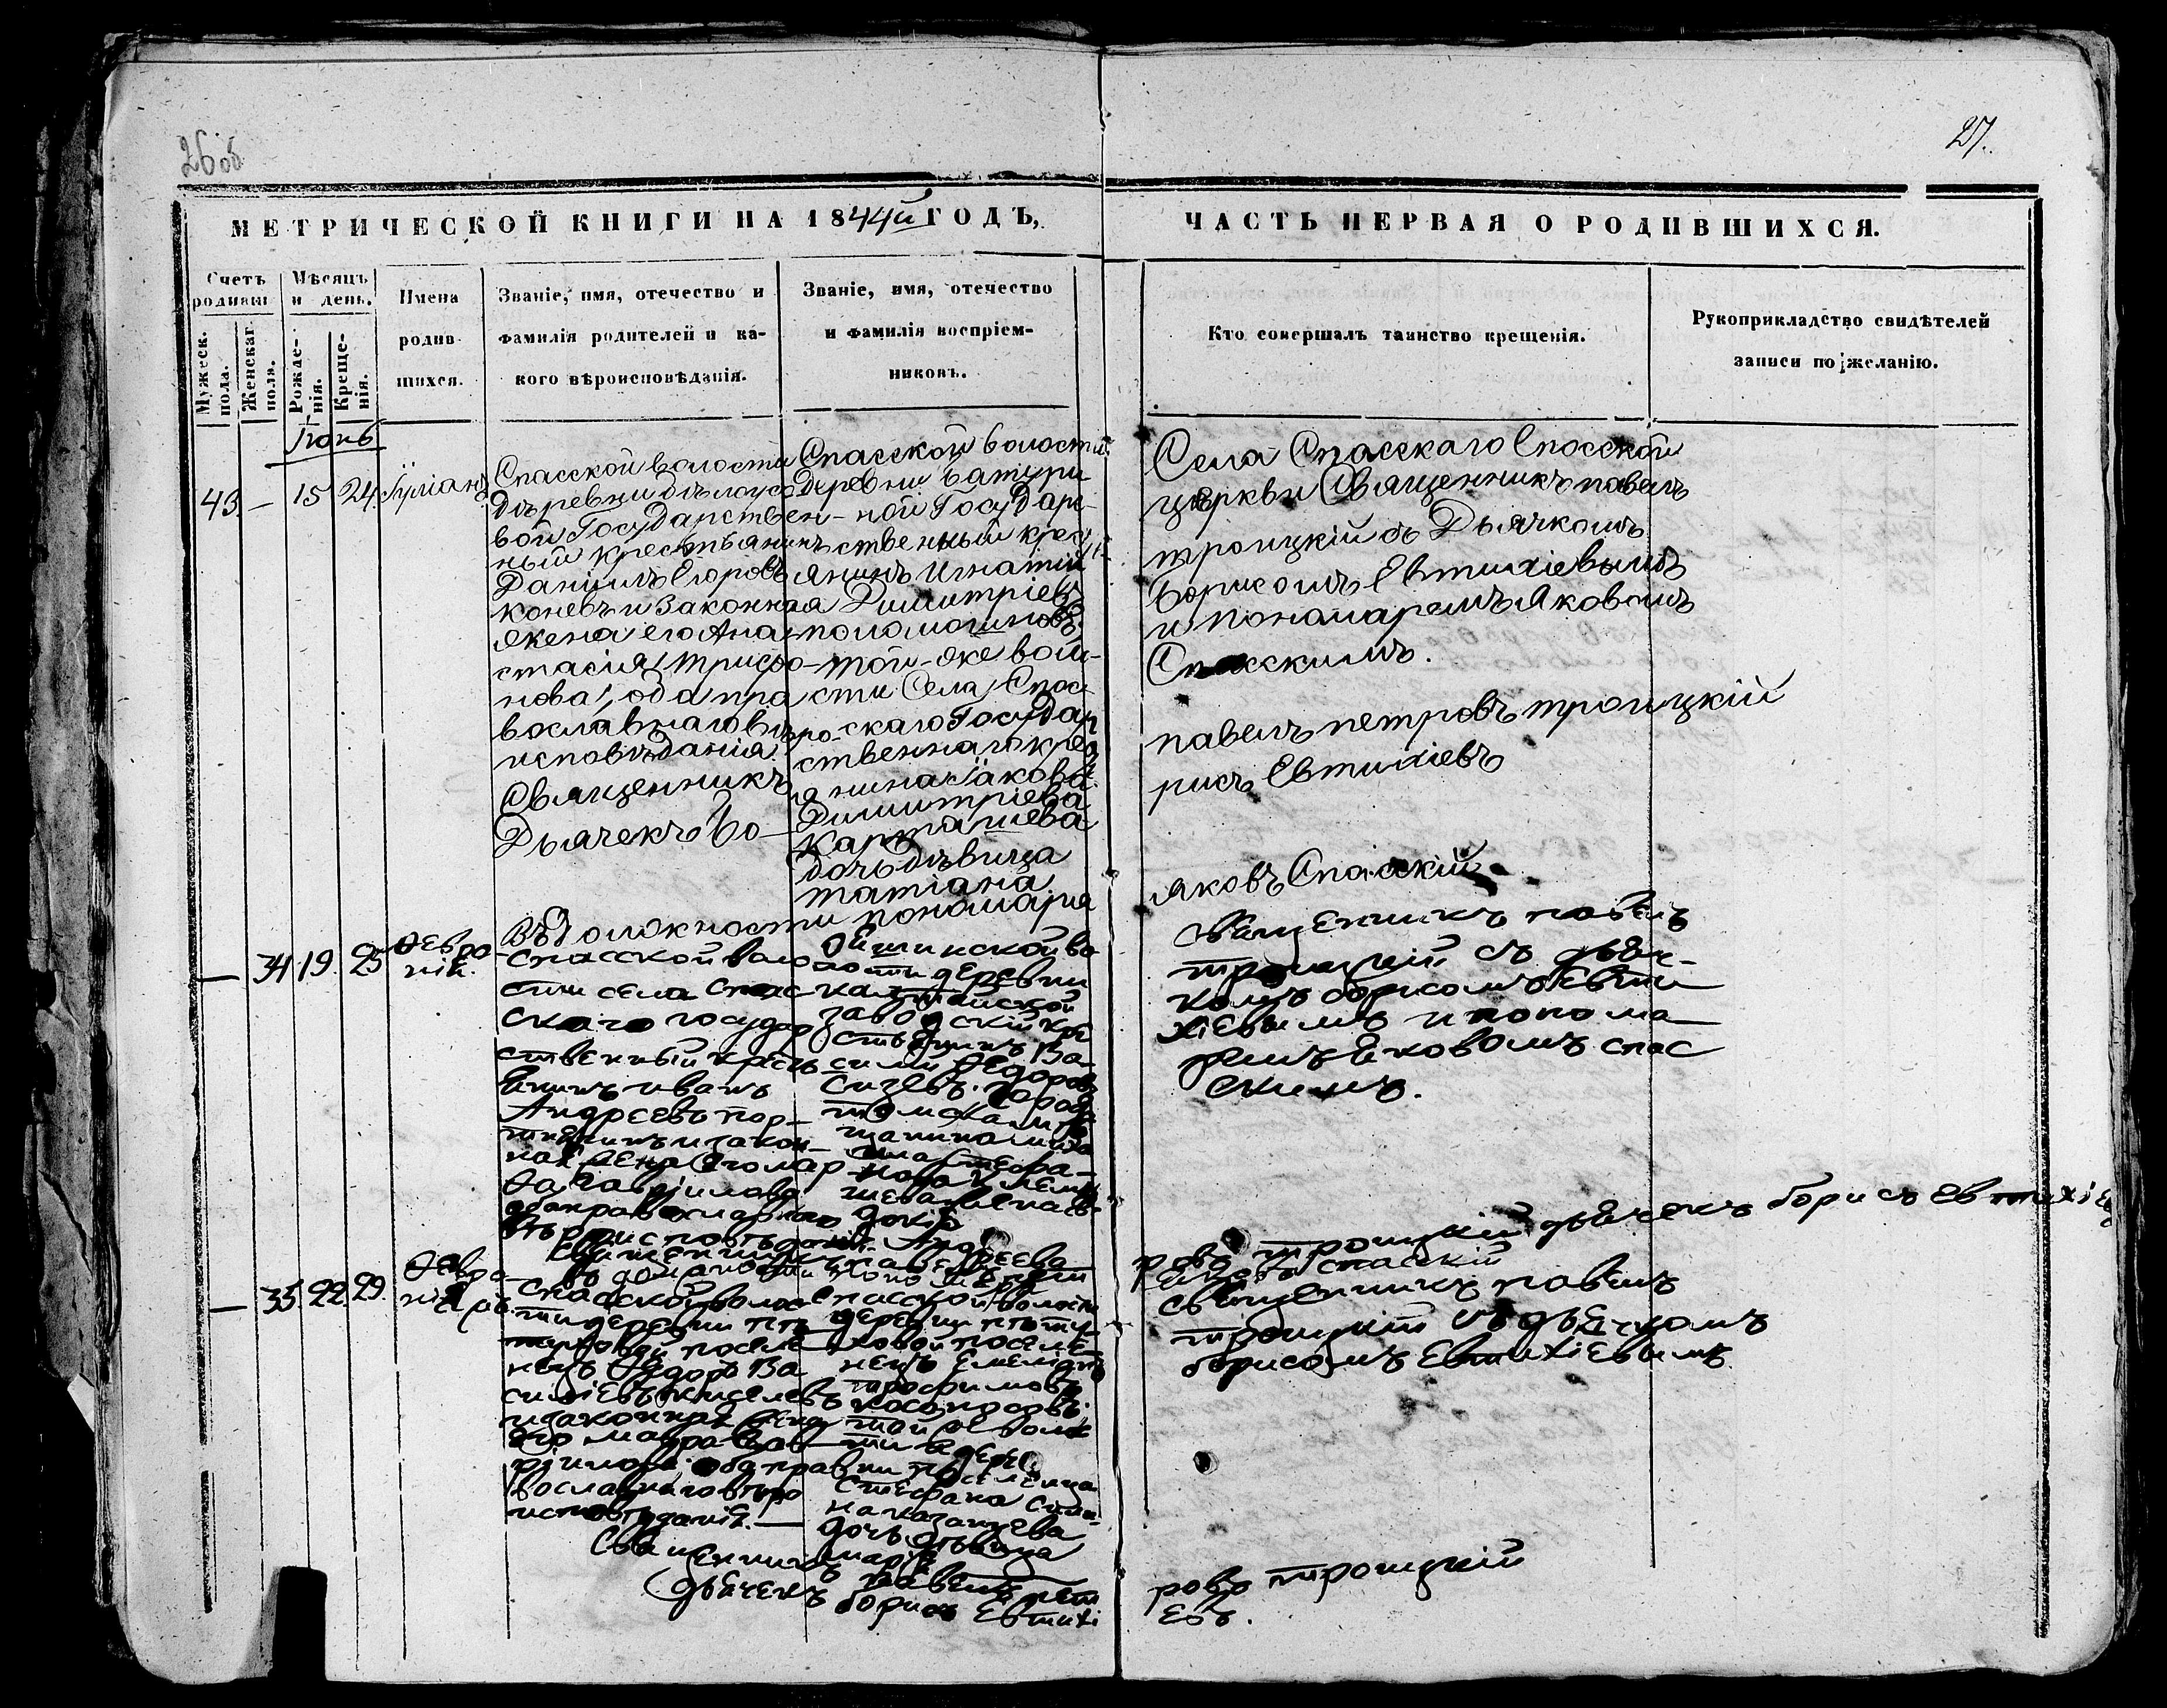 26об
27.
МЕТРИЧЕСКОЙ КНИГИ НА 1844й ГОДЪ,
ЧАСТЬ ПЕРВАЯ О РОДИВШИХСЯ.
Счетъ родивш
Мужеск. пола.
Женскаг пола.
Мѣсяцъ и день.
Рожде-
нія.
Креще-
нія.
Имена
родив
шихся.
Званіе, имя, отечество и
фамилія родителей и ка-
кого вѣроисповѣданія.
Званіе, имя, отечество
и фамилія воспріем-
никовъ.
Кто совершалъ таинство крещенія.
Рукоприкладство свидѣтелей
записи по желанію.
Іюнь
43. — 15 24. Іуліанъ
Спасской волости
деревни
вой Государствен-
ный крестьянинъ
Даніилъ Егоровъ
коневъ и Законная
жена его Ана-
стасія Трифо-
нова, оба пра
вославнаго вѣро-
исповѣданія.
Священникъ
Дьячекъ Бо-
Спасской волости
Деревни Батури
ной Государ-
ственный крес
янинъ Игнатій
Димитріевъ
поломошновъ
той-же воло-
сти Села Спас
скаго Государ
ственнаго кре
янина Іакова
Димитріева
Карташева
дочь дѣвица
татіана
Въ Должности пономаря
Села Спасскаго Спосской
церкви Священникъ павелъ
троицкій съ Дьячкомъ
Борисомъ Евтихіевымъ
и пономаремъ Яковомъ
Спасскимъ.
павелъ петровъ троицкій
рисъ Евтихіевъ
яковъ Спасскій
— 34 19. 25 Февро
нія.
Спасской воло
сти села Спас
скаго государ
ственный кресть
янинъ иванъ
Андреевъ пор-
тнягинъ и закон-
ная жена его мар
фа Гавріилова
оба православнаго
вѣроисповѣданія.
волости деревни
заводскій кре
стьянинъ Ва-
силій Федоровъ
города
томска мѣ
щанина
Стефа-
нова
шева жена
Андреева
Священникъ павелъ пет
въ должности пономаря
священникъ павелъ
троицкій съ дьяч-
комъ борисомъ Евти
хіевымъ и понома
ремъ яковомъ спас
скимъ.
ровъ троицкій дьячекъ борисъ Евтихіевъ
яковъ спасскій
— 35. 22. 29. Февро
нія
Спасской волос
ти деревни пѣ
туховой поселе
нецъ Федоръ Ва
силіевъ киселевъ
и законная жена
его мавра Гав
ріилова оба пра
вославнаго вѣро
исповѣданія. —
Спасской волости
деревни пѣту
ховой поселе
нецъ Емеліянъ
трофимовъ
косоносовъ.
той же волос
ти и дерев
ни поселенца
Стефана Сте
на казанцева
дочь дѣвица
марія
Священникъ павелъ пет
дьячекъ борисъ Евтихі
священникъ павелъ
троицкій съ дьячкомъ
борисомъ Евтихіевымъ
ровъ троицкій
евъ.